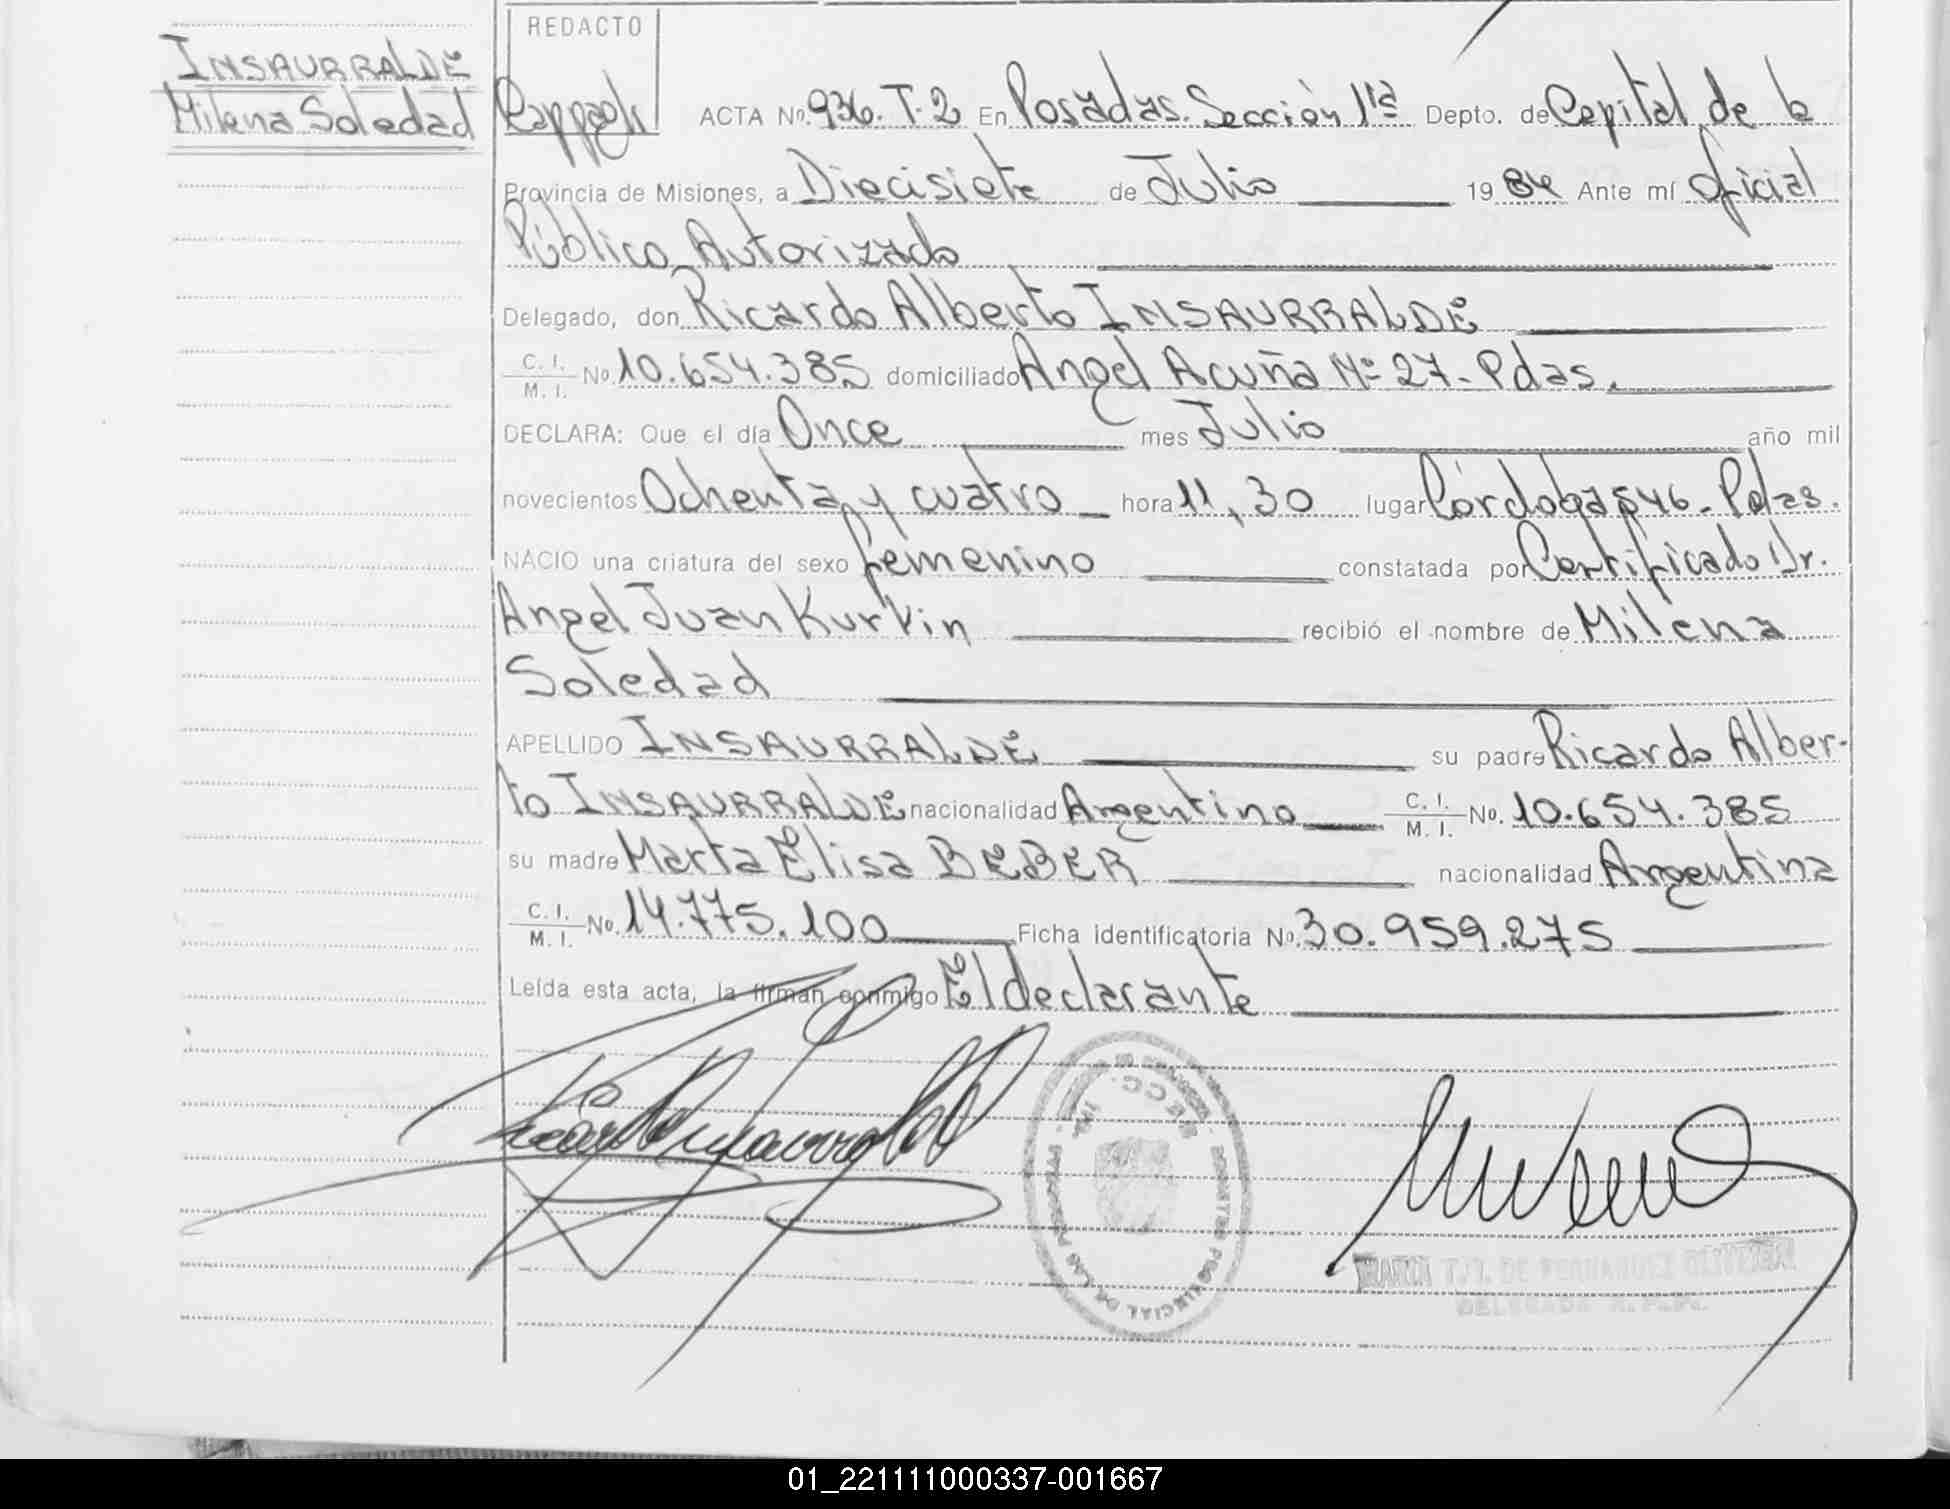 INSAURRALDE
Milena Soledad
REDACTO
ACTA Nº. 936. T. 2 En Posadas. Sección 1ra Depto. de Capital de la
Provincia de Misiones, a Diecisiete de Julio 1984 Ante mí Oficial
Público Autorizado
Delegado, don Ricardo Alberto INSAURRALDE
C. I. / M. I. Nº 10.654.385 domiciliado Angel Acuña Nº 27 - Pdas.
DECLARA: Que el día Once mes Julio año mil
novecientos Ochenta y cuatro hora 11,30 lugar Córdoba 546 - Pdas.
NACIO una criatura del sexo femenino constatada por Certificado Dr.
Angel Juan Kurkin recibió el nombre de Milena
Soledad
APELLIDO INSAURRALDE su padre Ricardo Alber-
to INSAURRALDE nacionalidad Argentino C. I. / M. I. No. 10.654.385
su madre Marta Elisa BEBER nacionalidad Argentina
C. I. / M. I. No. 14.775.100 Ficha identificatoria Nº. 30.959.275
Leída esta acta, la firman conmigo El declarante
MARIA T. DE FERNANDEZ
DELEGADA
01_221111000337-001667